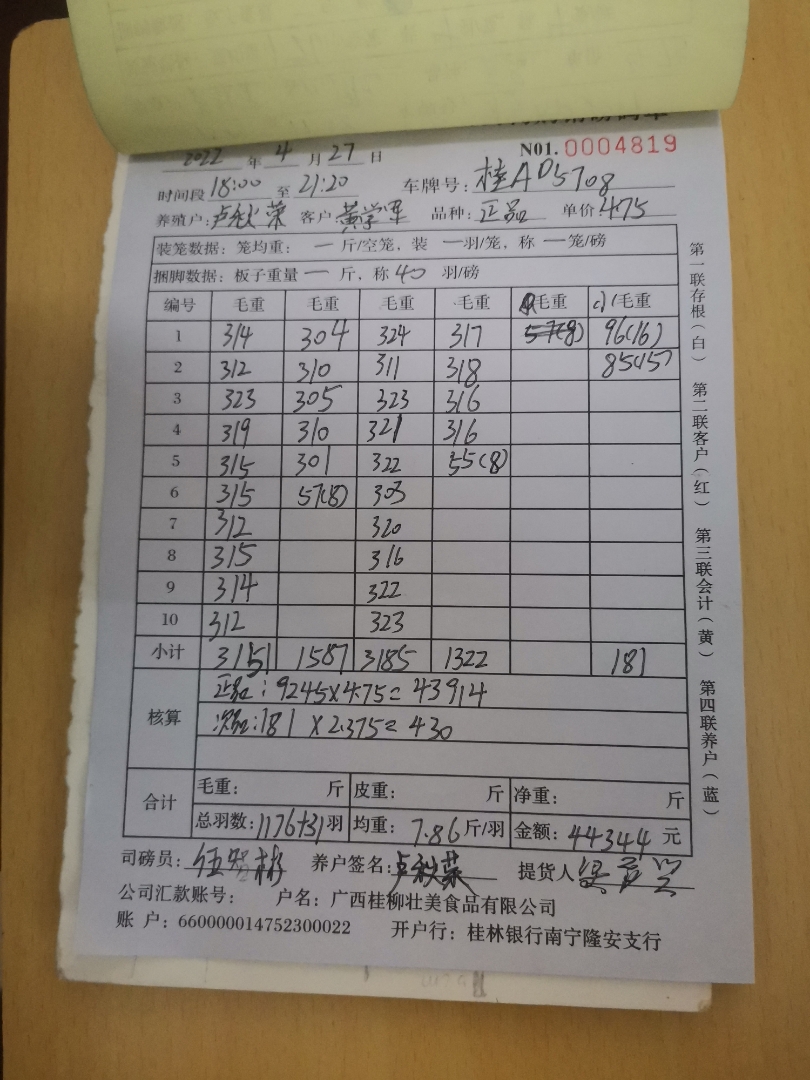 N01. 0004819
2022 年 4 月 27 日
时间段 18:00 至 21:20 车牌号: 桂AD5708
养殖户: 卢秋荣 客户 黄学军 品种: 正品 单价 4.75
装笼数据: 笼均重: 一 斤/空笼, 装 一 羽/笼, 称 一 笼/磅
捆脚数据: 板子重量 一 斤, 称 40 羽/磅
编号 毛重 毛重 毛重 毛重 毛重 毛重
1 314 304 324 317 57(8) 96(16)
2 312 310 311 318 85(15)
3 323 305 323 316
4 319 310 321 316
5 315 301 322 55(8)
6 315 57(8) 303
7 312 320
8 315 316
9 314 322
10 312 323
小计 3151 1587 3185 1322 181
核算 正品: 9245×4.75=43914
次品: 181×2.375=430
合计 毛重: 斤 皮重: 斤 净重: 斤
总羽数: 1176+31 羽 均重: 7.86 斤/羽 金额: 44344 元
司磅员: 养户签名: 提货人
公司汇款账号: 户名: 广西桂柳壮美食品有限公司
账 户: 660000014752300022 开户行: 桂林银行南宁隆安支行
第一联存根(白) 第二联客户(红) 第三联会计(黄) 第四联养户(蓝)